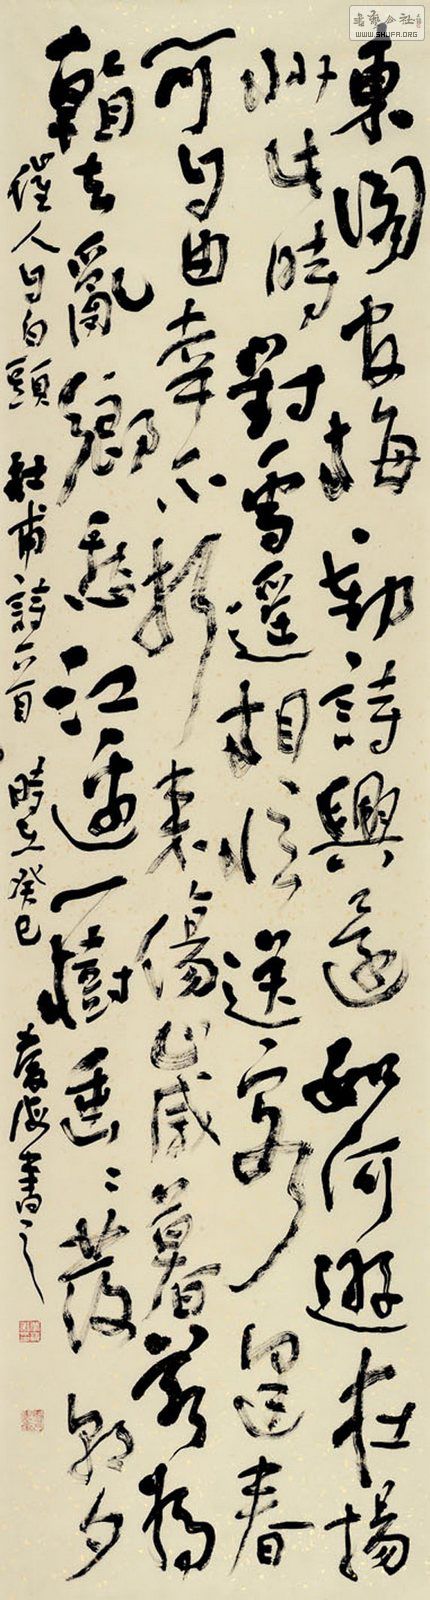 東閣官梅動詩興還如何遜在揚
州此時對雪遙相憶送客逢春
可自由幸不折來傷歲暮若為
看去亂鄉愁江邊一樹垂〻發朝夕
催人自白頭 杜甫詩一首 時在癸巳 書之
書藝公社
WWW.SHUFA.ORG